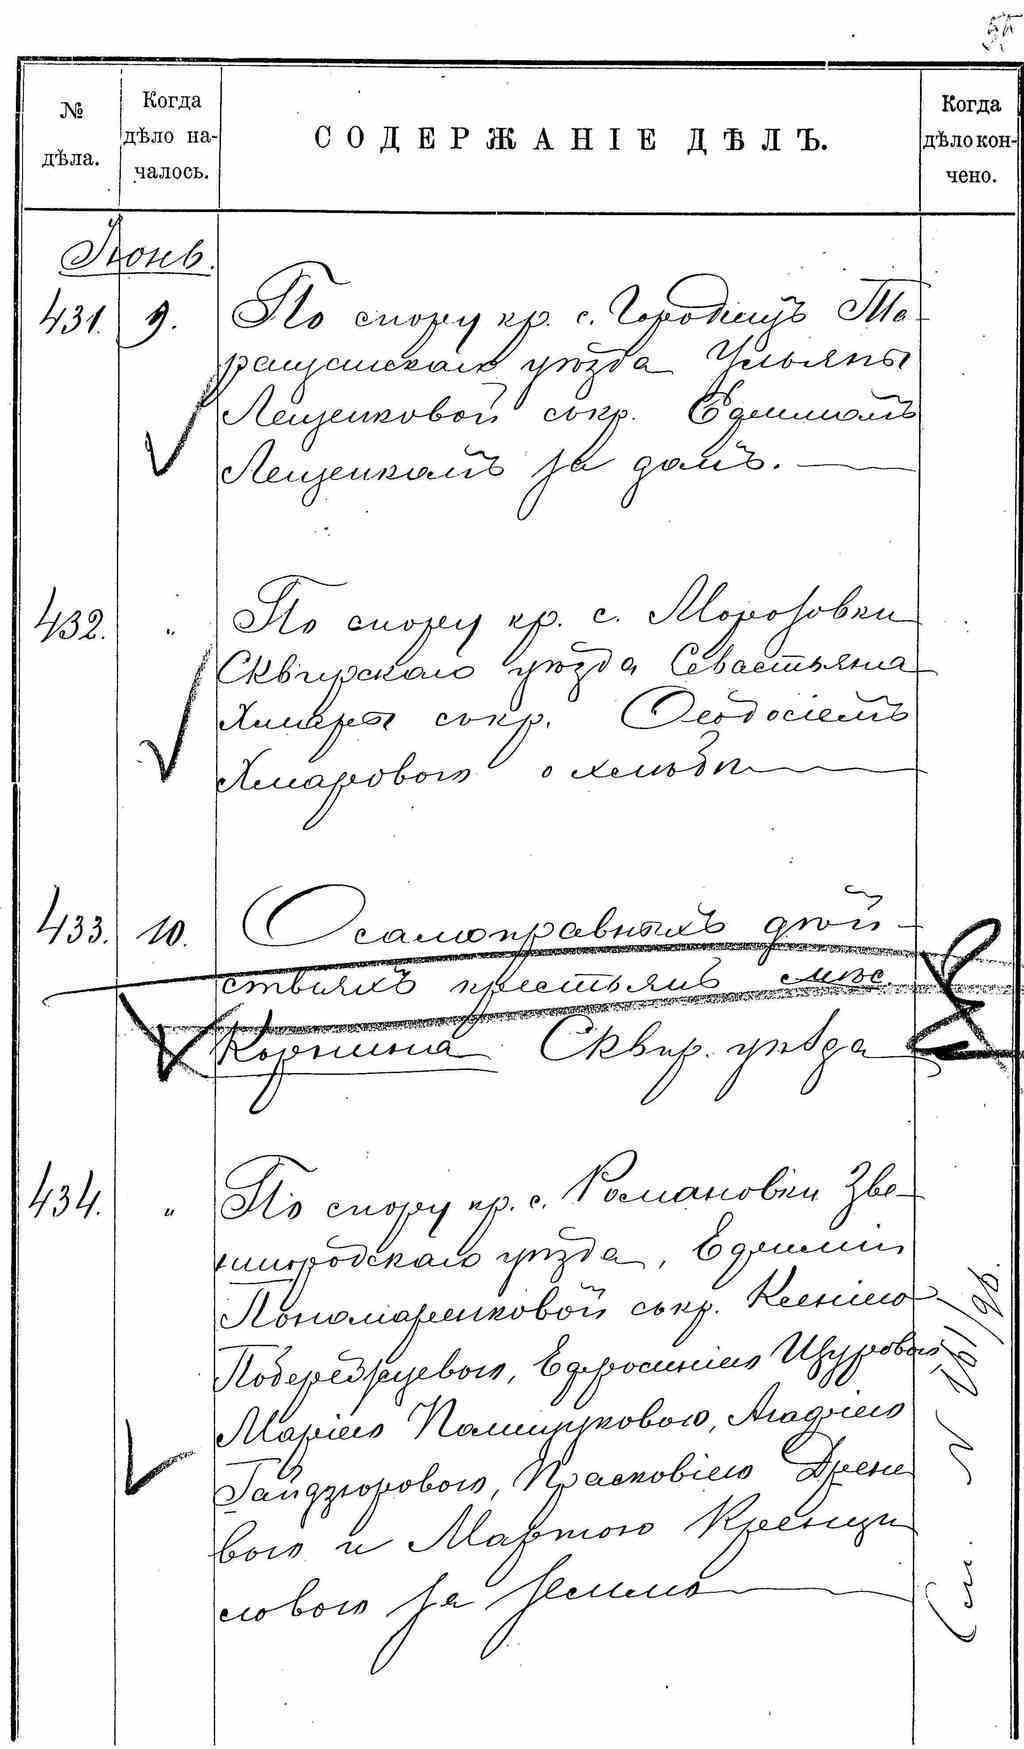 № дѣла.
Когда дѣло на-
чалось.
СОДЕРЖАНІЕ ДѢЛЪ.
Когда дѣло кон-
чено.
Іюнь.
431. 9. По спору кр. с. Городищъ Та-
ращанскаго уѣзда Ульяны
Лещенковой съ кр. Ефимомъ
Лещенкомъ за домъ.
432. " По спору кр. с. Морозовки
Сквирскаго уѣзда Севастьяна
Хмары съ кр. Ѳеодосіемъ
Хмаровою о хлѣбѣ
433. 10. О самоправныхъ дѣй-
ствіяхъ крестьянъ мѣс.
Корнина Сквир. уѣзда
434. " По спору кр. с. Романовки Зве-
нигородскаго уѣзда, Ефиміи
Пономаренковой съ кр. Ксеніею
Побережцевою, Ефросиніею Щуровою
Маріею Полищуковою, Агафіею
Гайдзюровою, Прасковіею
вою и Мартою
словою за землю
См. N 161/96.